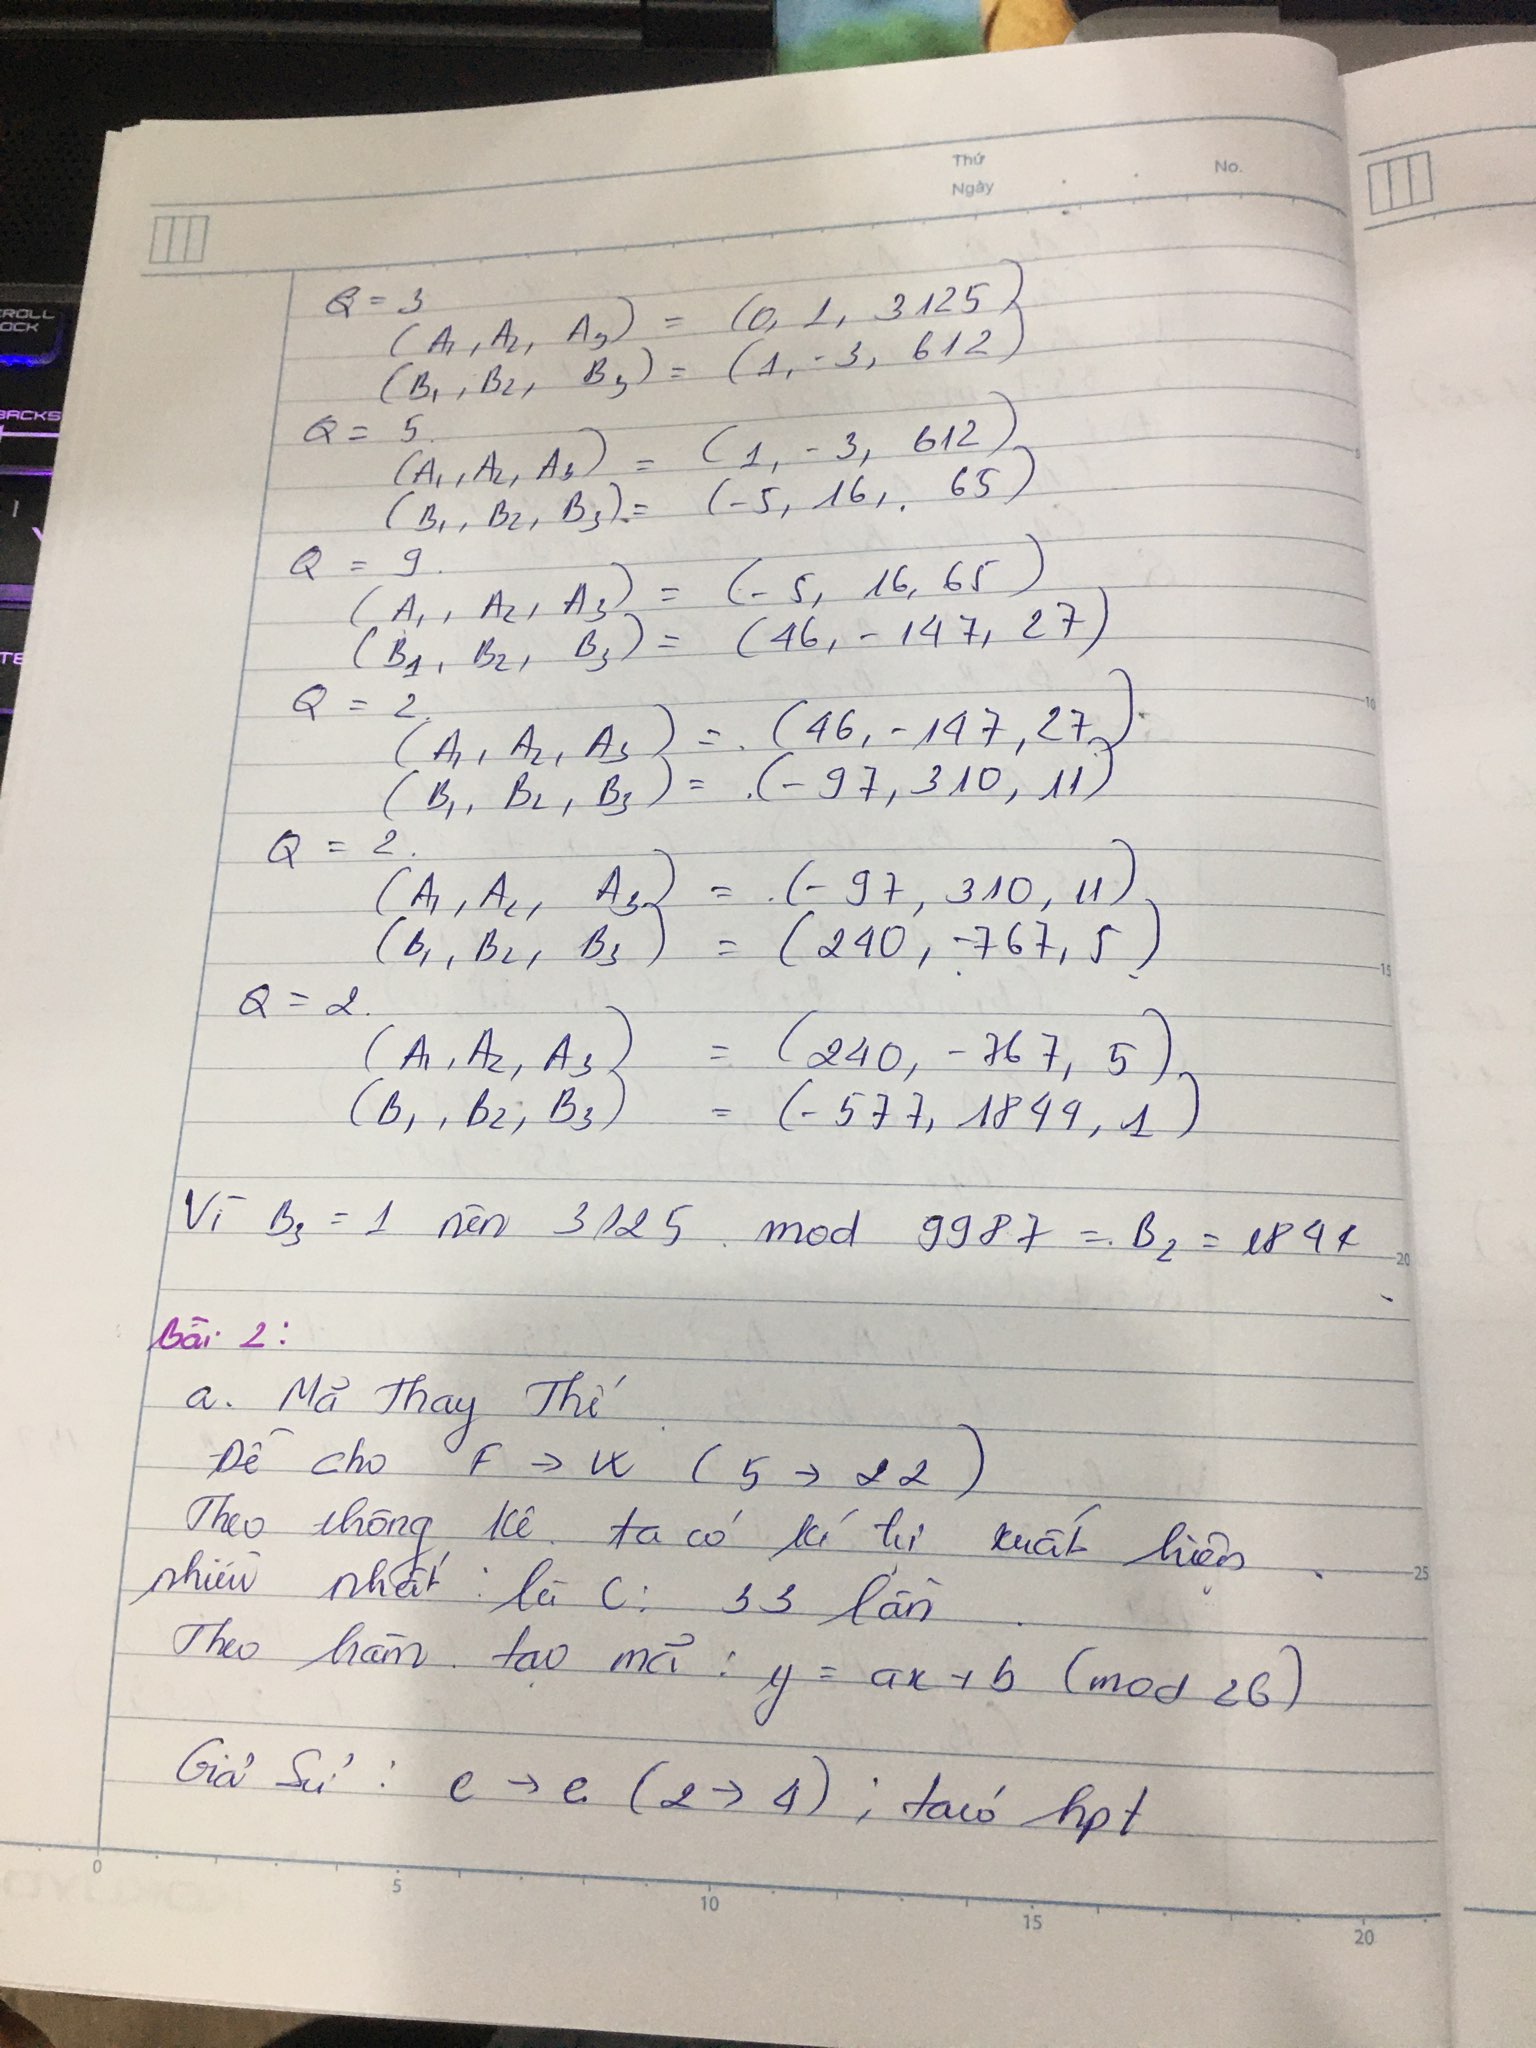 Thứ
Ngày
No.
Q = 3
(A1, A2, A3) = (0, 1, 3125)
(B1, B2, B3) = (1, -3, 612)
Q = 5.
(A1, A2, A3) = (1, -3, 612)
(B1, B2, B3) = (-5, 16, 65)
Q = 9.
(A1, A2, A3) = (-5, 16, 65)
(B1, B2, B3) = (46, -147, 27)
Q = 2.
(A1, A2, A3) = (46, -147, 27)
(B1, B2, B3) = (-97, 310, 11)
Q = 2.
(A1, A2, A3) = (-97, 310, 11)
(B1, B2, B3) = (240, -767, 5)
Q = 2.
(A1, A2, A3) = (240, -767, 5)
(B1, B2, B3) = (-577, 1844, 1)
Vì B3 = 1 nên 3125 mod 9987 = B2 = 1844
Bài 2:
a. Mã Thay Thế
Đề cho F → W (5 → 22)
Theo thống kê ta có kí tự xuất hiện
nhiều nhất là C: 33 lần
Theo hàm tạo mã: y = ax + b (mod 26)
Giả sử: c → e (2 → 4); ta có hpt
0 5 10 15 20
5
10
15
20
25